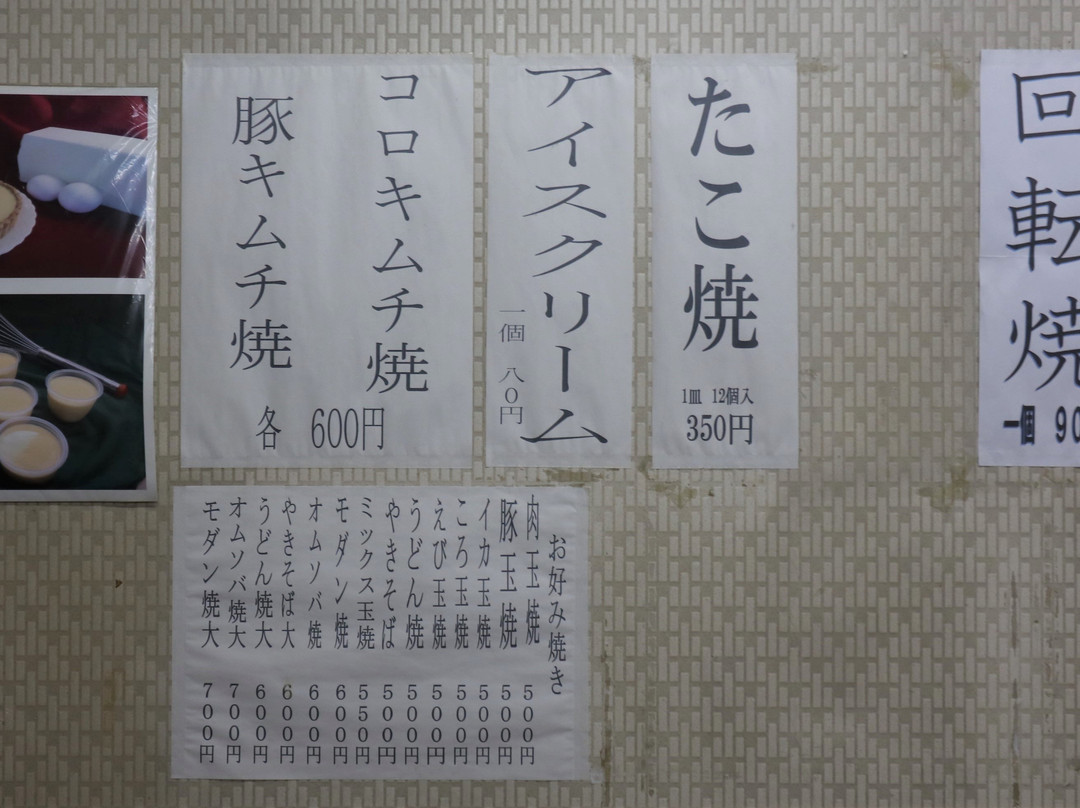 回転焼
一個 90
たこ焼
1皿 12個入
350円
アイスクリーム
一個 八〇円
コロキムチ焼
豚キムチ焼
各 600円
お好み焼き
肉玉焼 500円
豚玉焼 500円
イカ玉焼 500円
ころ玉焼 500円
えび玉焼 500円
うどん焼 500円
やきそば 500円
ミックス玉焼 550円
モダン焼 600円
オムソバ焼 600円
やきそば大 600円
うどん焼大 600円
オムソバ焼大 700円
モダン焼大 700円